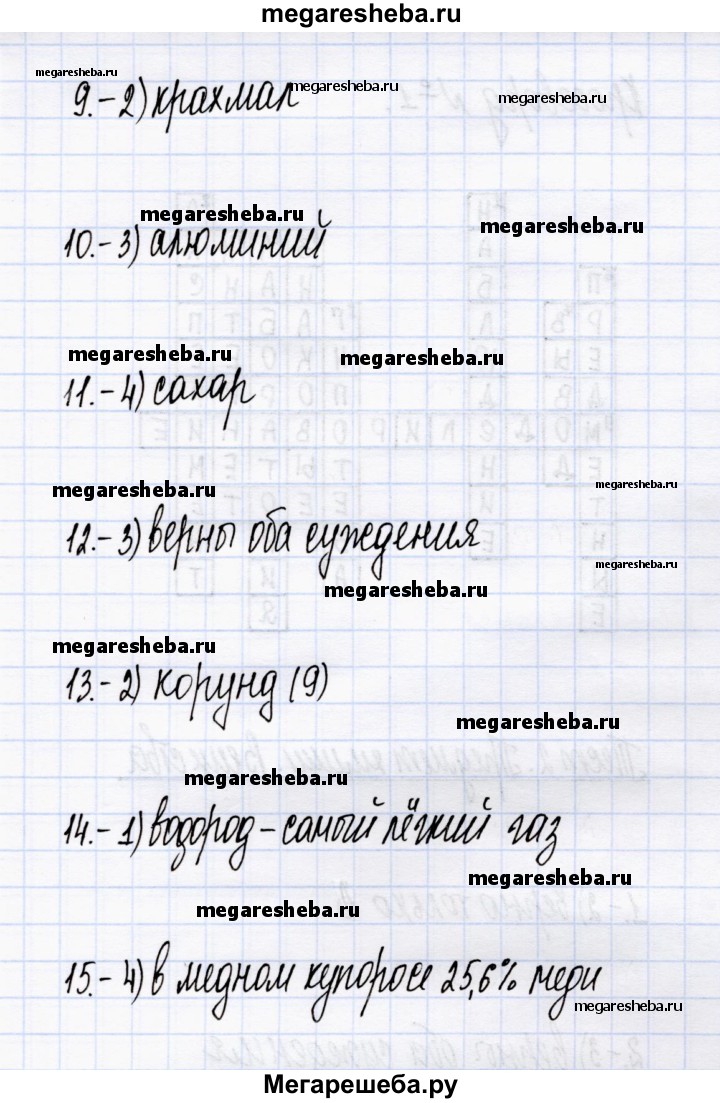 megaresheba.ru
megaresheba.ru
9.-2) крахмал megaresheba.ru
megaresheba.ru
megaresheba.ru
megaresheba.ru
10.-3) алюминий
megaresheba.ru
megaresheba.ru
11.-4) сахар
megaresheba.ru
megaresheba.ru
12.-3) верны оба суждения
megaresheba.ru
megaresheba.ru
megaresheba.ru
13.-2) корунд (9)
megaresheba.ru
megaresheba.ru
14.-1) водород - самый лёгкий газ
megaresheba.ru
megaresheba.ru
15.-4) в медном купоросе 25,6% меди
megaresheba.ru
Мегарешеба.ру